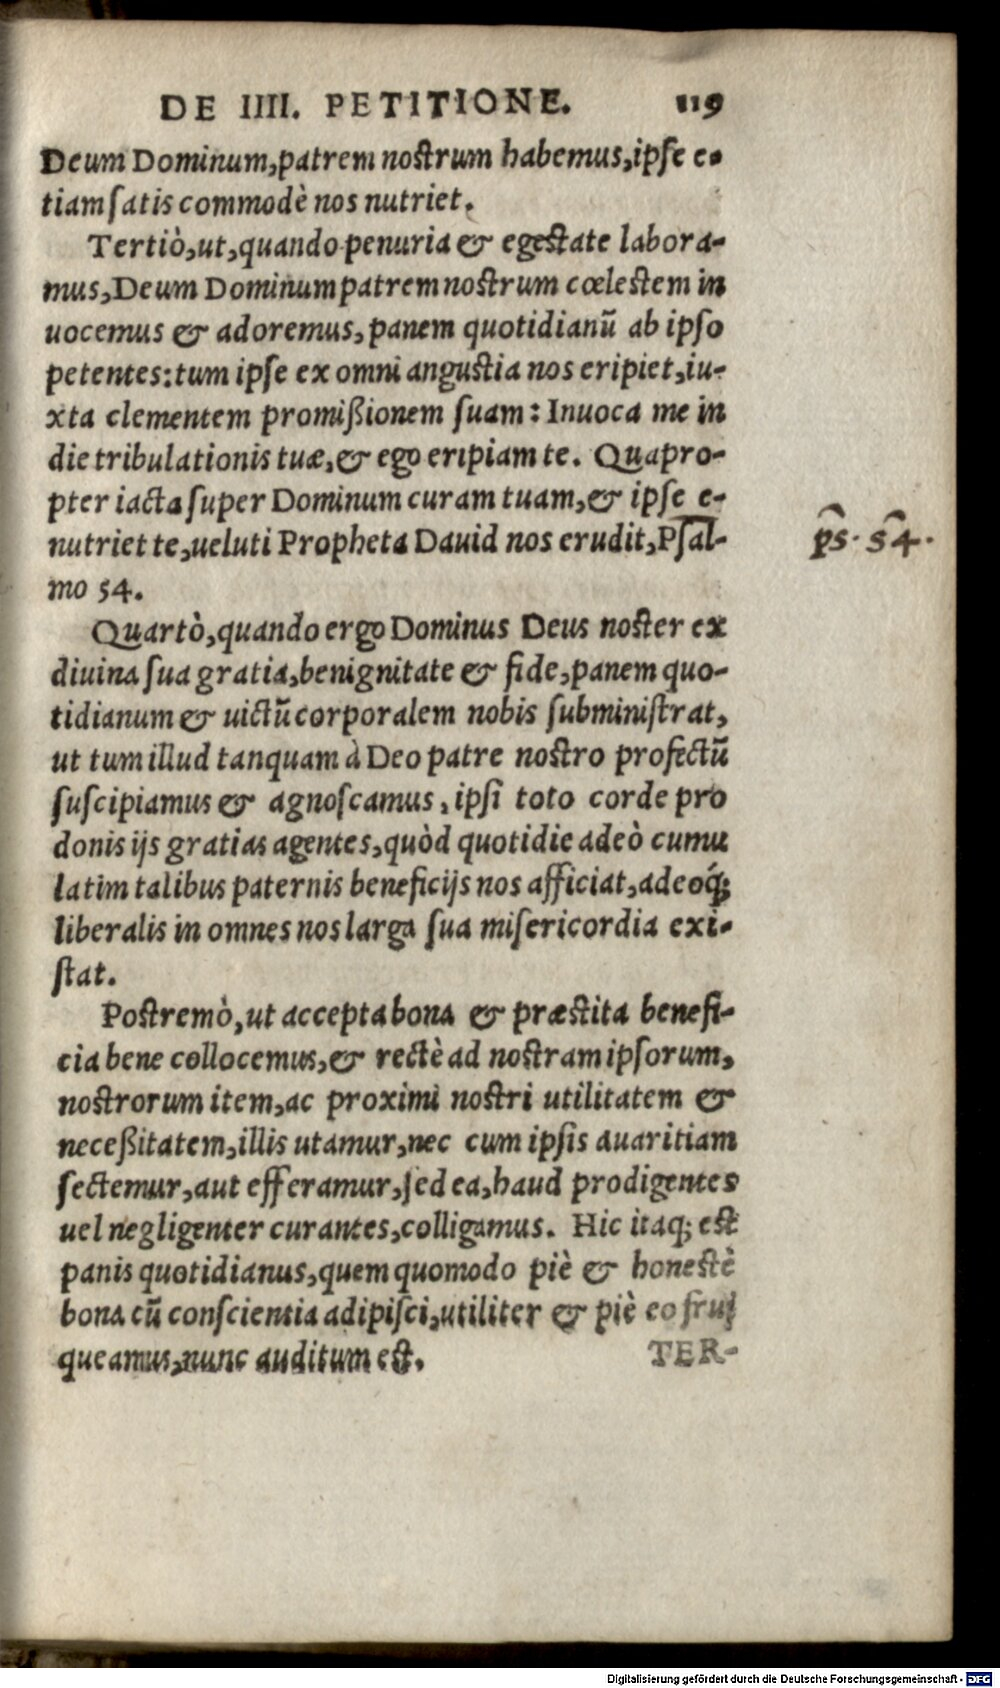 DE IIII. PETITIONE. 119
Deum Dominum,patrem nostrum habemus,ipse e-
tiam satis commodè nos nutriet.
Tertiò,ut,quando penuria & egestate labora-
mus,Deum Dominum patrem nostrum cœlestem in
uocemus & adoremus,panem quotidianũ ab ipso
petentes:tum ipse ex omni angustia nos eripiet,iu-
xta clementem promißionem suam: Inuoca me in
die tribulationis tuæ,& ego eripiam te. Quapro-
pter iacta super Dominum curam tuam,& ipse e-
nutriet te,ueluti Propheta Dauid nos erudit,Psal-
mo 54.
ps. 54.
Quartò,quando ergo Dominus Deus noster ex
diuina sua gratia,benignitate & fide,panem quo-
tidianum & uictũ corporalem nobis subministrat,
ut tum illud tanquam à Deo patre nostro profectũ
suscipiamus & agnoscamus, ipsi toto corde pro
donis ijs gratias agentes,quòd quotidie adeò cumu
latim talibus paternis beneficijs nos afficiat,adeoq́;
liberalis in omnes nos larga sua misericordia exi-
stat.
Postremò,ut accepta bona & præstita benefi-
cia bene collocemus,& rectè ad nostram ipsorum,
nostrorum item,ac proximi nostri utilitatem &
neceßitatem,illis utamur,nec cum ipsis auaritiam
sectemur,aut efferamur,sed ea,haud prodigentes
uel negligenter curantes,colligamus. Hic itaq; est
panis quotidianus,quem quomodo piè & honestè
bona cũ conscientia adipisci,utiliter & piè eo frui
queamus,nunc auditum est. TER-
Digitalisierung gefördert durch die Deutsche Forschungsgemeinschaft - DFG